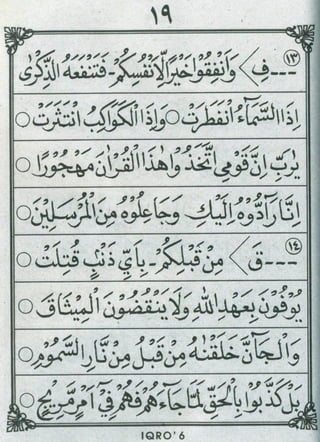 ١٩
١٣ ---ف> وَاَنْفِقُوْا خَيْرًا لِّاَنْفُسِكُمْ - فَتَنْفَعَهُ الذِّكْرٰى
اِذَا السَّمَآءُ انْفَطَرَتْ ○ وَاِذَا الْكَوَاكِبُ انْتَثَرَتْ ○
يٰرَبِّ اِنَّ قَوْمِى اتَّخَذُوْا هٰذَا الْقُرْاٰنَ مَهْجُوْرًا ○
اِنَّا رَآدُّوْهُ اِلَيْكِ وَجَاعِلُوْهُ مِنَ الْمُرْسَلِيْنَ ○
١٤ ---ق> مِنْ قَبْلِكُمْ - بِاَيِّ ذَنْبٍ قُتِلَتْ ○
يُوْفُوْنَ بِعَهْدِ اللّٰهِ وَلَا يَنْقُضُوْنَ الْمِيْثَاقَ ○
وَالْجَآنَّ خَلَقْنٰهُ مِنْ قَبْلُ مِنْ نَّارِ السَّمُوْمِ ○
بَلْ كَذَّبُوْا بِالْحَقِّ لَمَّا جَآءَهُمْ فَهُمْ فِيْٓ اَمْرٍ مَّرِيْجٍ ○
IQRO' 6